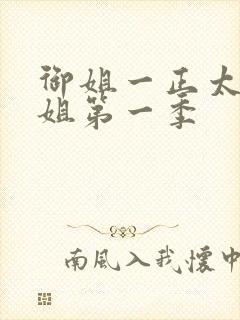 御姐一正太
姐第一季
南風入我懷中